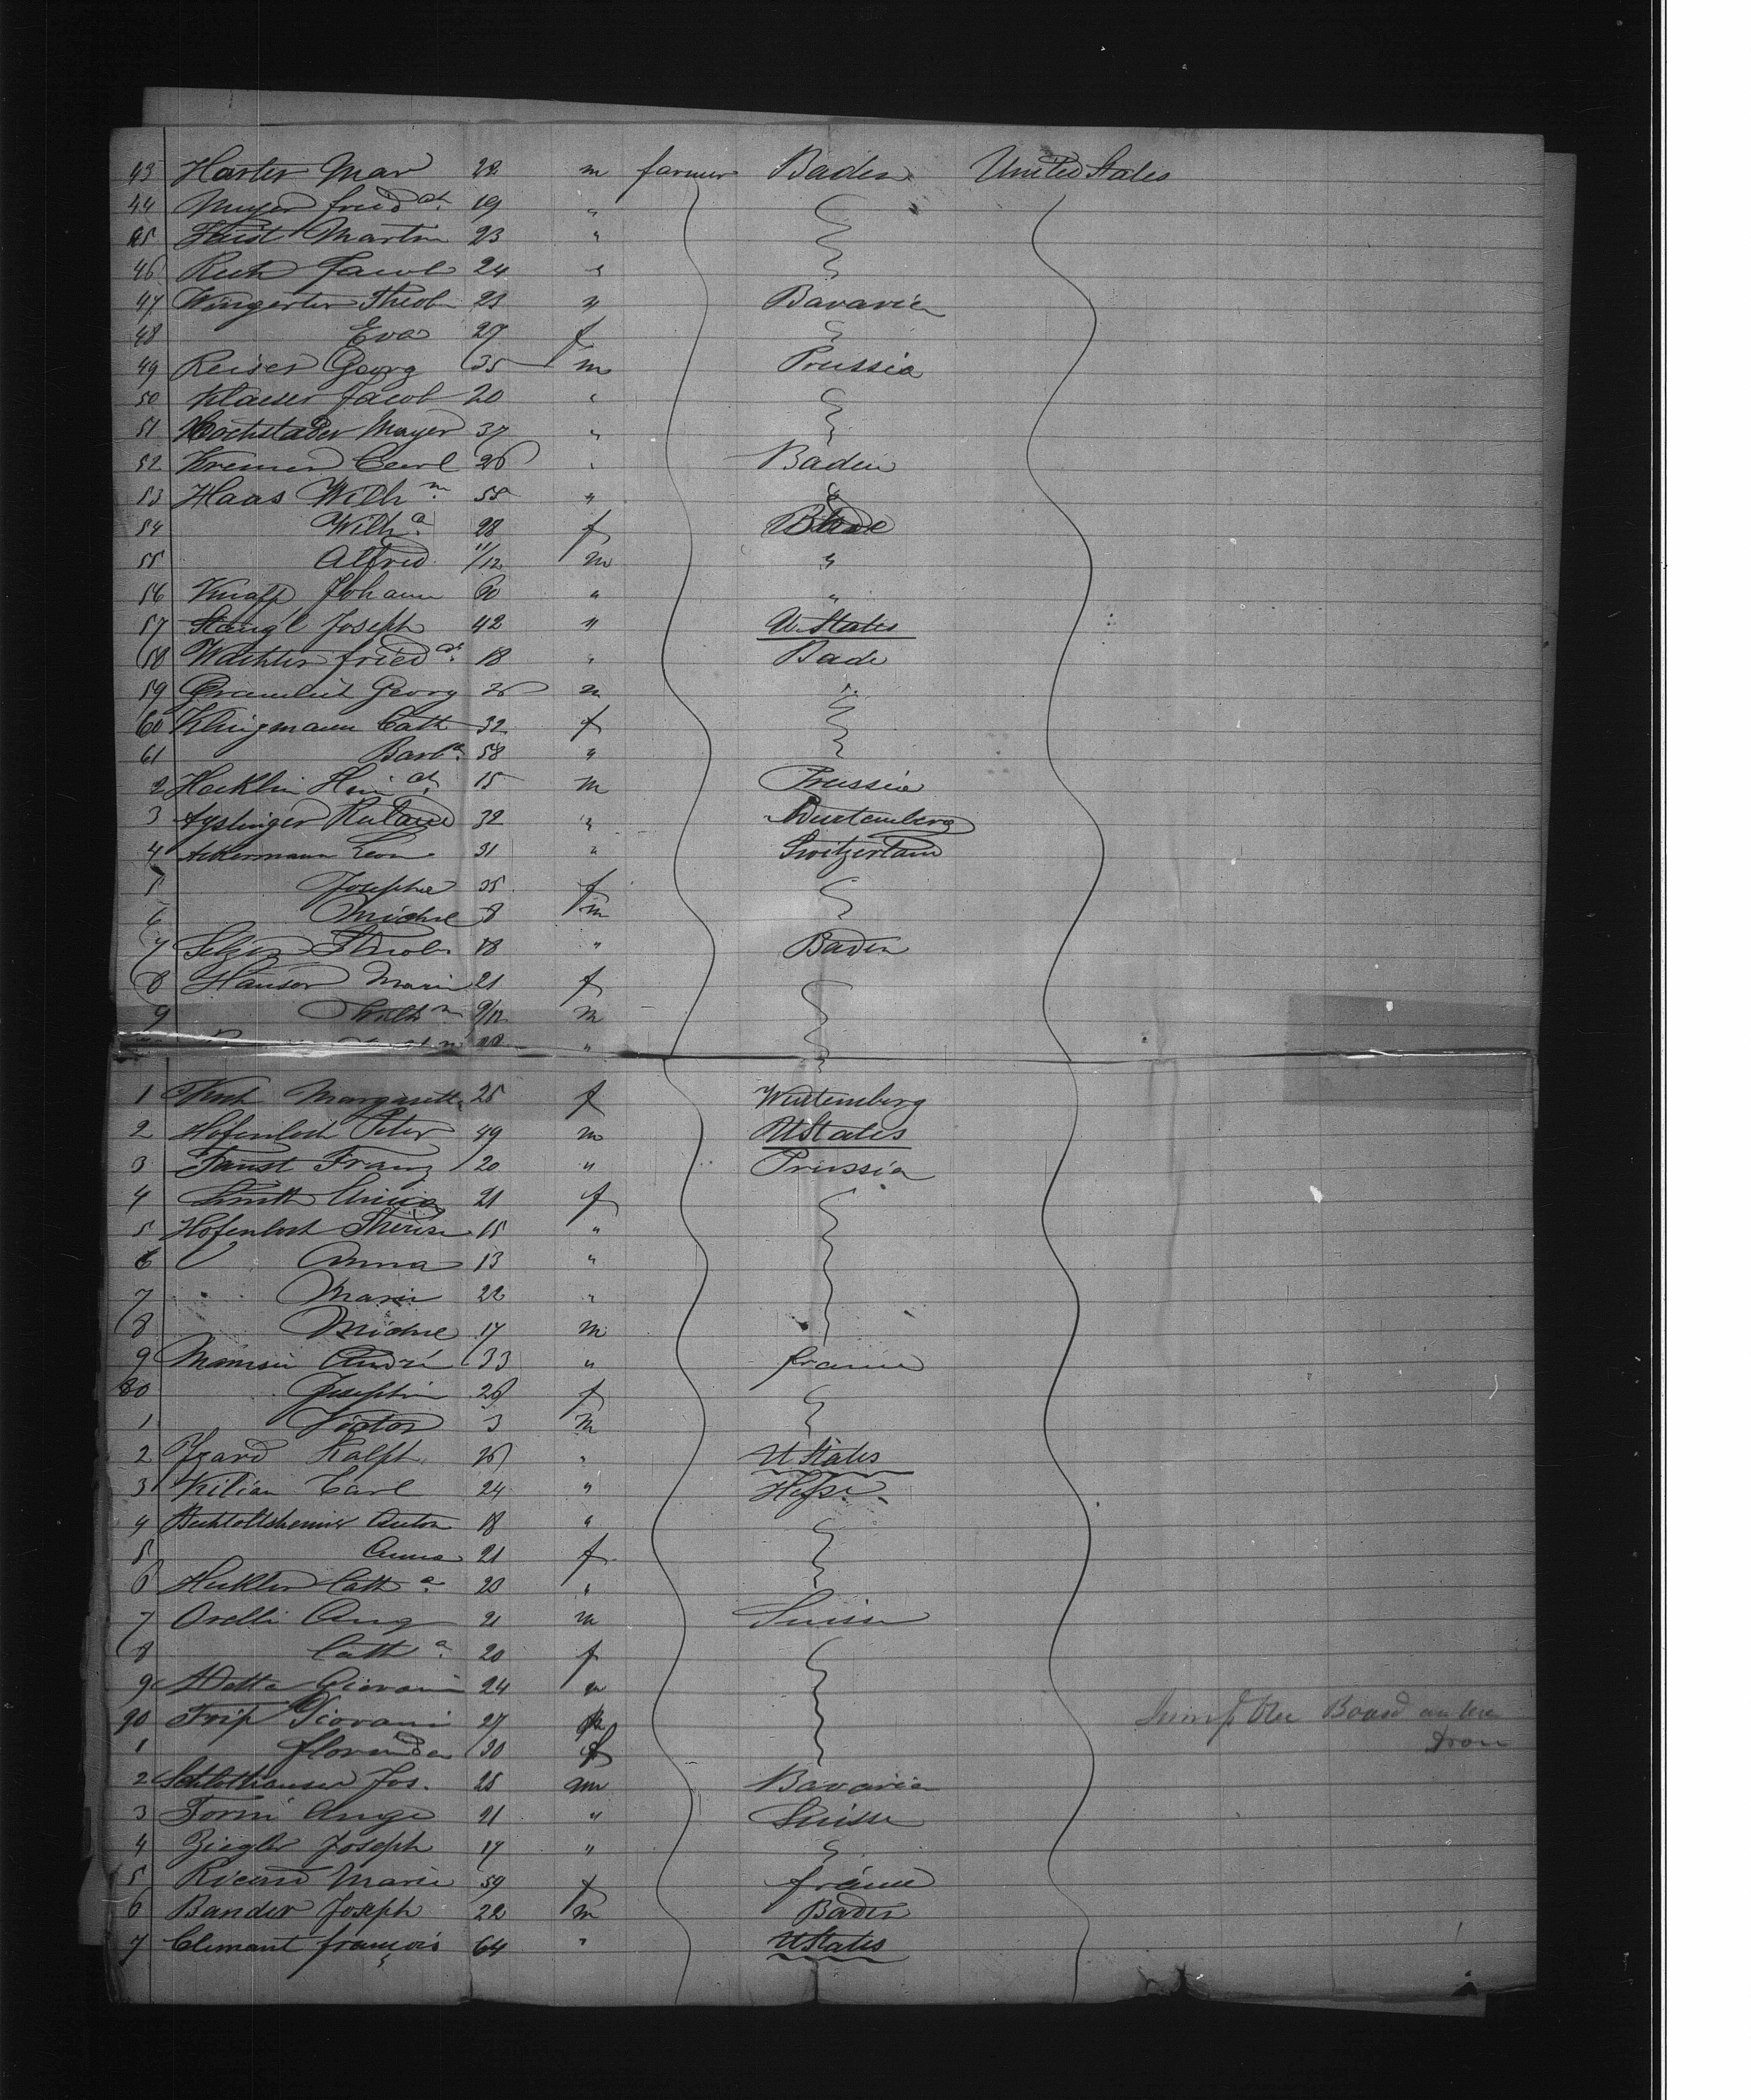 43 Harter Mar 22 m farmer Baden United States
44 Meyer fried ch. 19 "
45 Faist Martin 23 "
46 Ruh Jacob 24 "
47 Wingerter Theob 23 " Bavaria
48 Eva 27 f
49 Reiser Georg 35 m Prussia
50 Klaeser Jacob 20 "
51 Hochstader Mayer 37 "
52 Kremer Carl 26 " Baden
53 Haas Wilh m. 55 "
54 Wilh a. 28 f Bade
55 Alfred 11/12 m "
56 Knapp Johann 60 " "
57 Stangl Joseph 42 " U. States
58 Wachter fried ch. 18 " Bade
59 Georg m "
60 Klingmann Cath 32 f
61 Barb a. 58 "
2 Hecklin Hein ch. 15 m Prussia
3 Ayslinger 32 " Wurtemberg
4 Ackermann Leon 31 " Switzerland
5 Josephe 35 f
6 Michel 8 m
7 Theob. 18 " Baden
8 Hauser Marie 21 f
9 Wilh m 9/12 m
28 "
1 Margareth 25 f Wurtemberg
2 Hofenloch Peter 49 m U States
3 Faust Franz 20 " Prussia
4 21 f
5 Hofenloch Therese 15 "
6 Anna 13 "
7 Marie 22 "
8 Michel 17 m
9 André 33 " france
80 Josephin 28 f
1 Victor 3 m
2 Izard Ralph 26 " U States
3 Kilian Carl 24 " Hesse
4 Bechtoltsheimer Anton 18 "
5 Anna 21 f
6 Heckler Cath a. 20 "
7 Orelli Ang 21 m Suisse
8 Cath a. 20 f
9 Giovanni 24 m
90 Giovani 27
1 florenda 30 f
2 Schlothauser Jos. 25 m Bavaria
3 Forni Ange 21 " Suisse
4 Ziegler Joseph 17 " "
5 Ricard Marie 59 f france
6 Bander Joseph 22 m Baden
7 Clemant françois 64 " U States